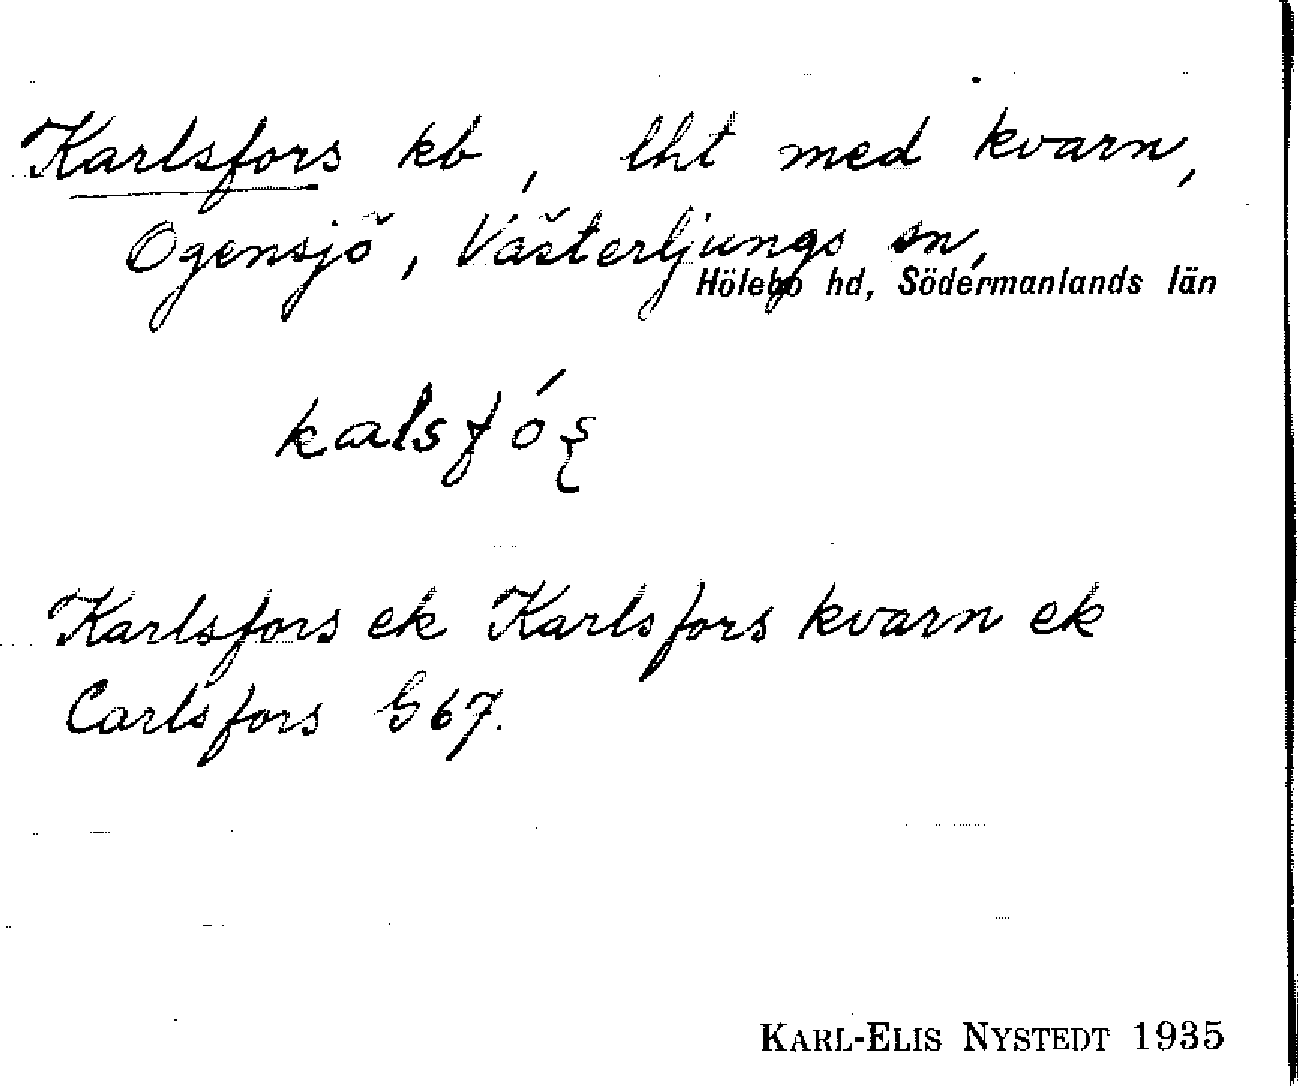 Karlsfors kb, lht med kvarn,
Ogensjö, Västerljungs sn,
Hölebo hd, Södermanlands län
kalsfóʂ
Karlsfors ek Karlsfors kvarn ek
Carlsfors G 67.
KARL-ELIS NYSTEDT 1935